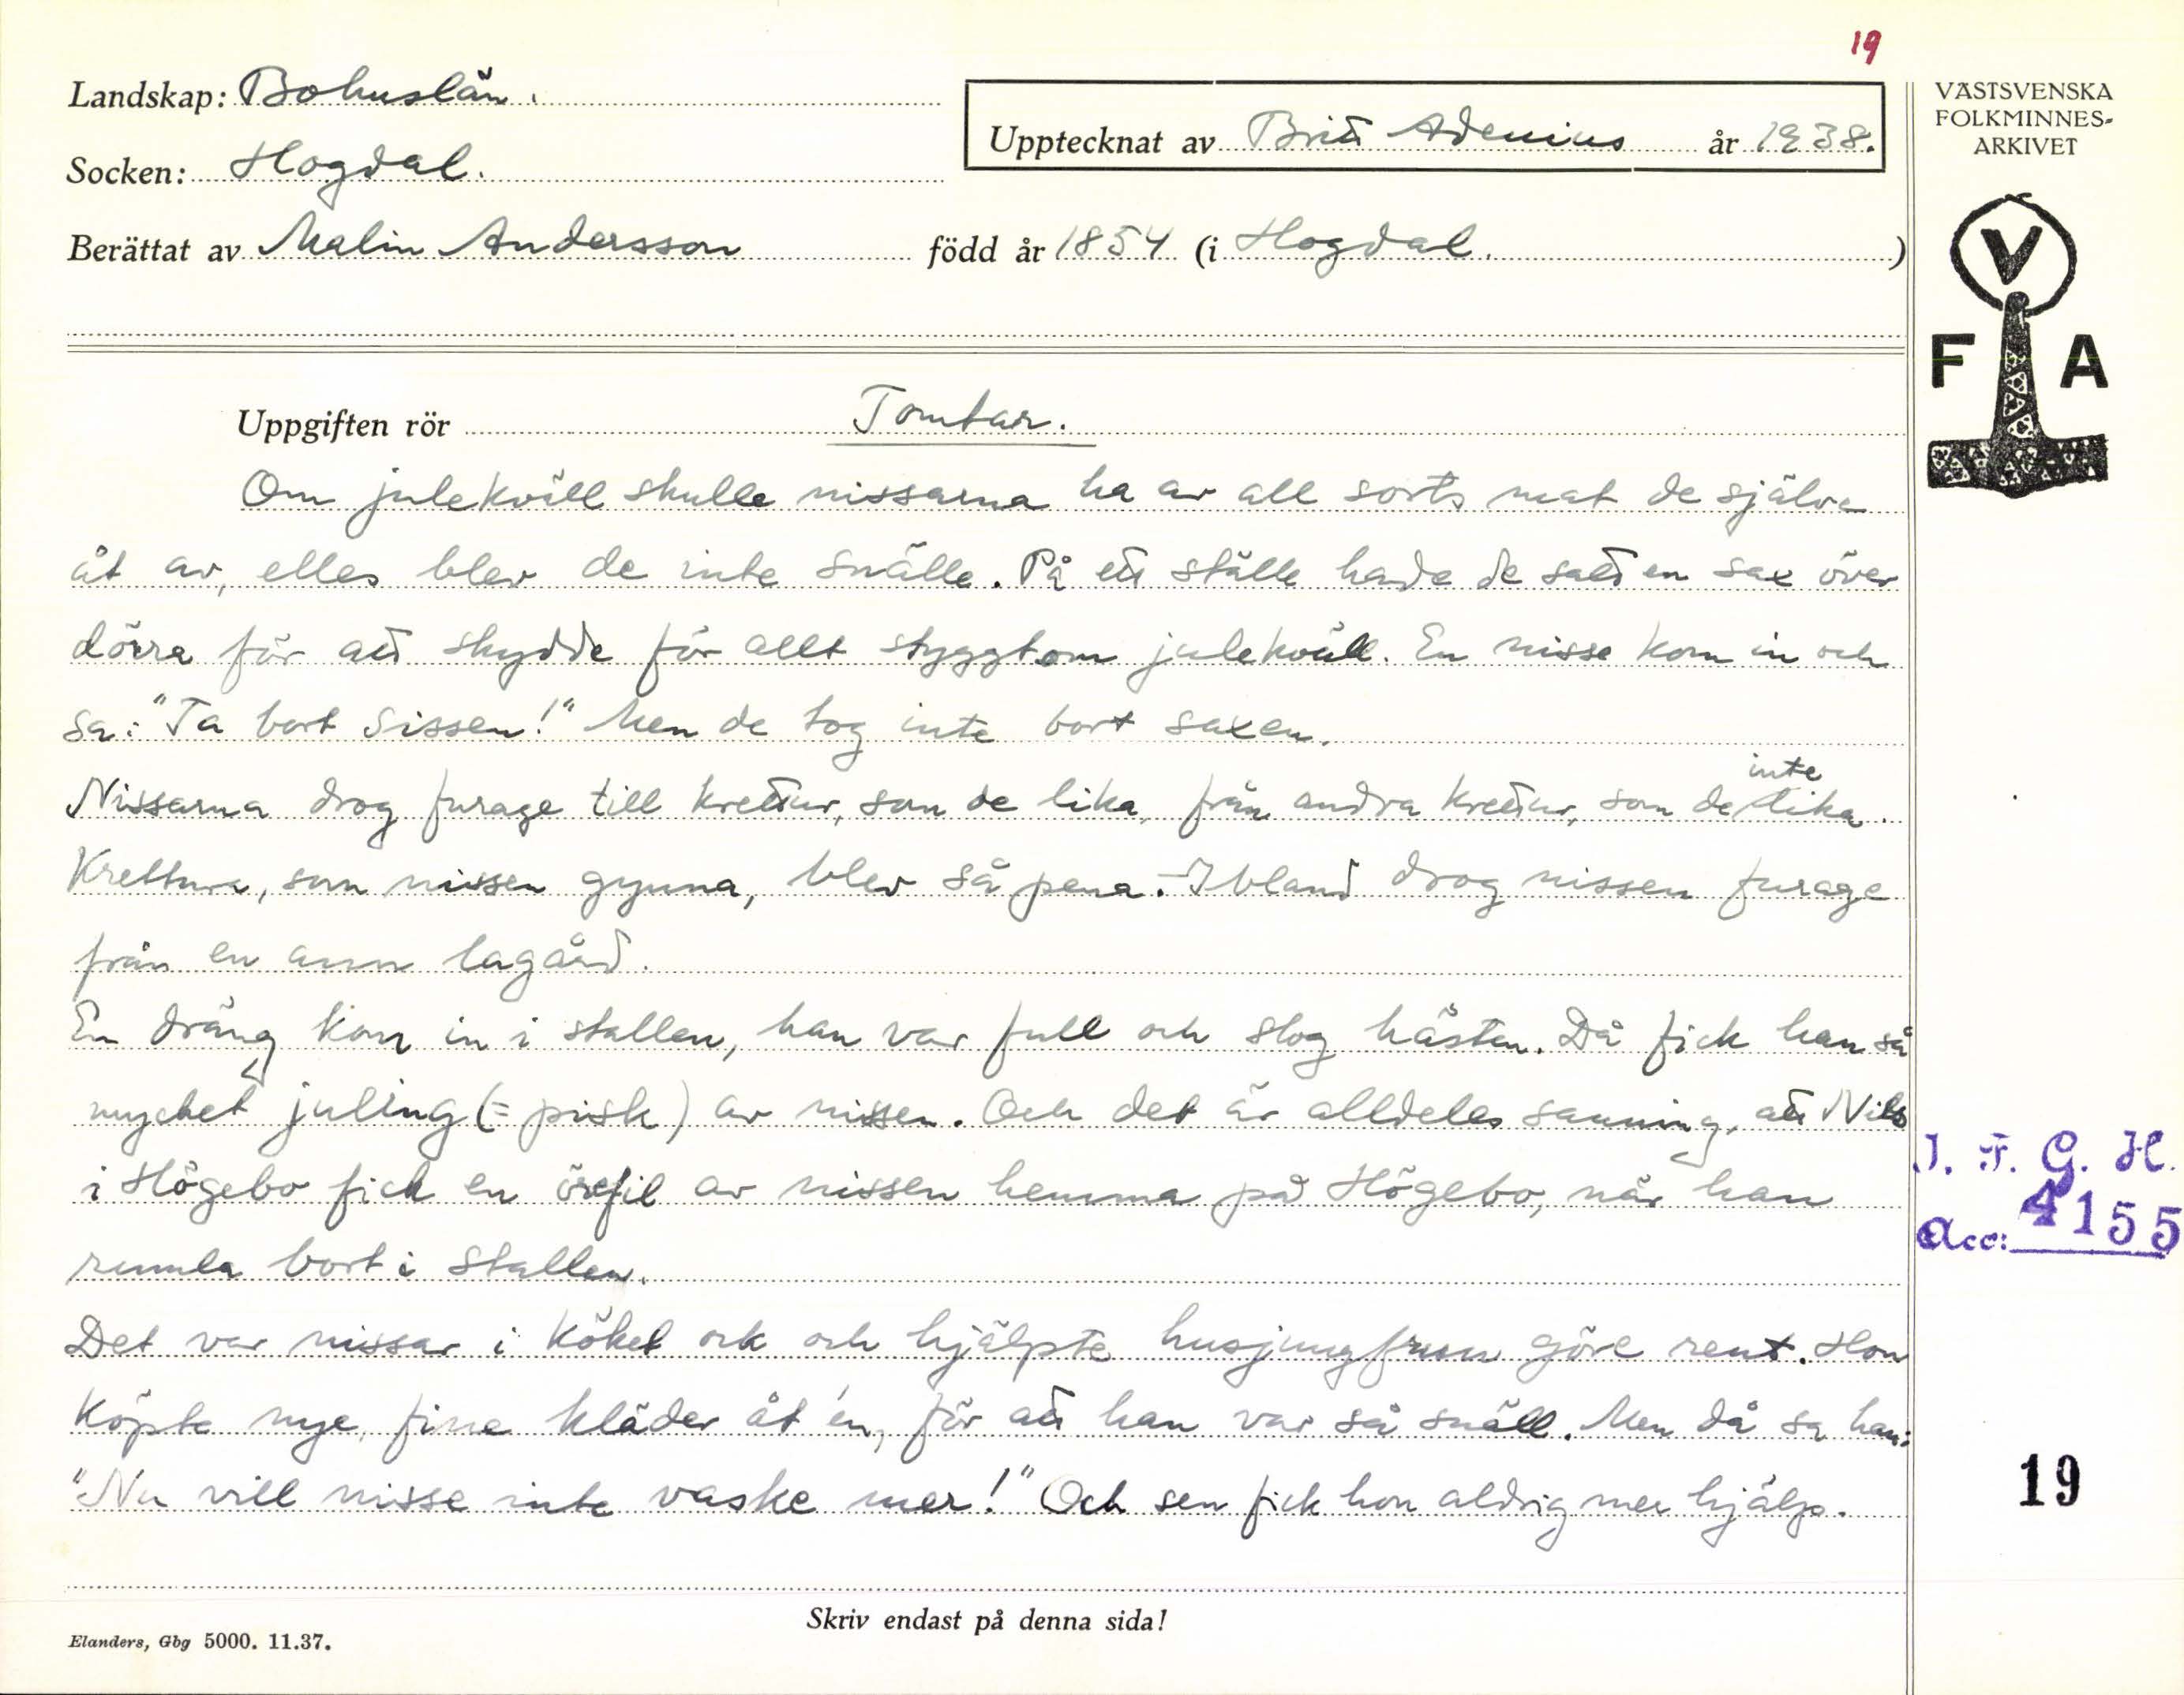 19
Landskap: Bohuslän.
Upptecknat av Britt Adenius år 1938.
Socken: Hogdal.
Berättat av Malin Andersson född år 1854 (i Hogdal.)
VÄSTSVENSKA
FOLKMINNES-
ARKIVET
V
F A
Uppgiften rör Tomtar.
Om julekväll skulle nissarna ha av all sorts mat de själva
åt av, elles blev de inte snälle. På ett ställe hade de satt en sax över
dörra för att skydde för allt styggt om julekväll. En nisse kom in och
sa: "Ta bort sissen!" Men de tog inte bort saxen.
Nissarna drog furage till krettur, som de lika, från andra krettur, som de inte lika.
Krettura, som nissen gynna, blev så pena. - Ibland drog nissen furage
från en ann lagård.
En dräng kom in i stallen, han var full och slog hästen. Då fick han så
mycket juling (= pisk) av nissen. Och det är alldeles sanning, att Nils
i Högebo fick en örefil av nissen hemma på Högebo, när han
rumla bort i stallen.
Det var nissar i köket ock och hjälpte husjungfrun göre rent. Hon
köpte nye, fine kläder åt 'en, för att han var så snäll. Men då sa han:
"Nu vill nisse inte vaske mer!" Och sen fick hon aldrig mer hjälp.
I. F. G. H.
Acc: 4155
19
Skriv endast på denna sida!
Elanders, Gbg 5000. 11.37.